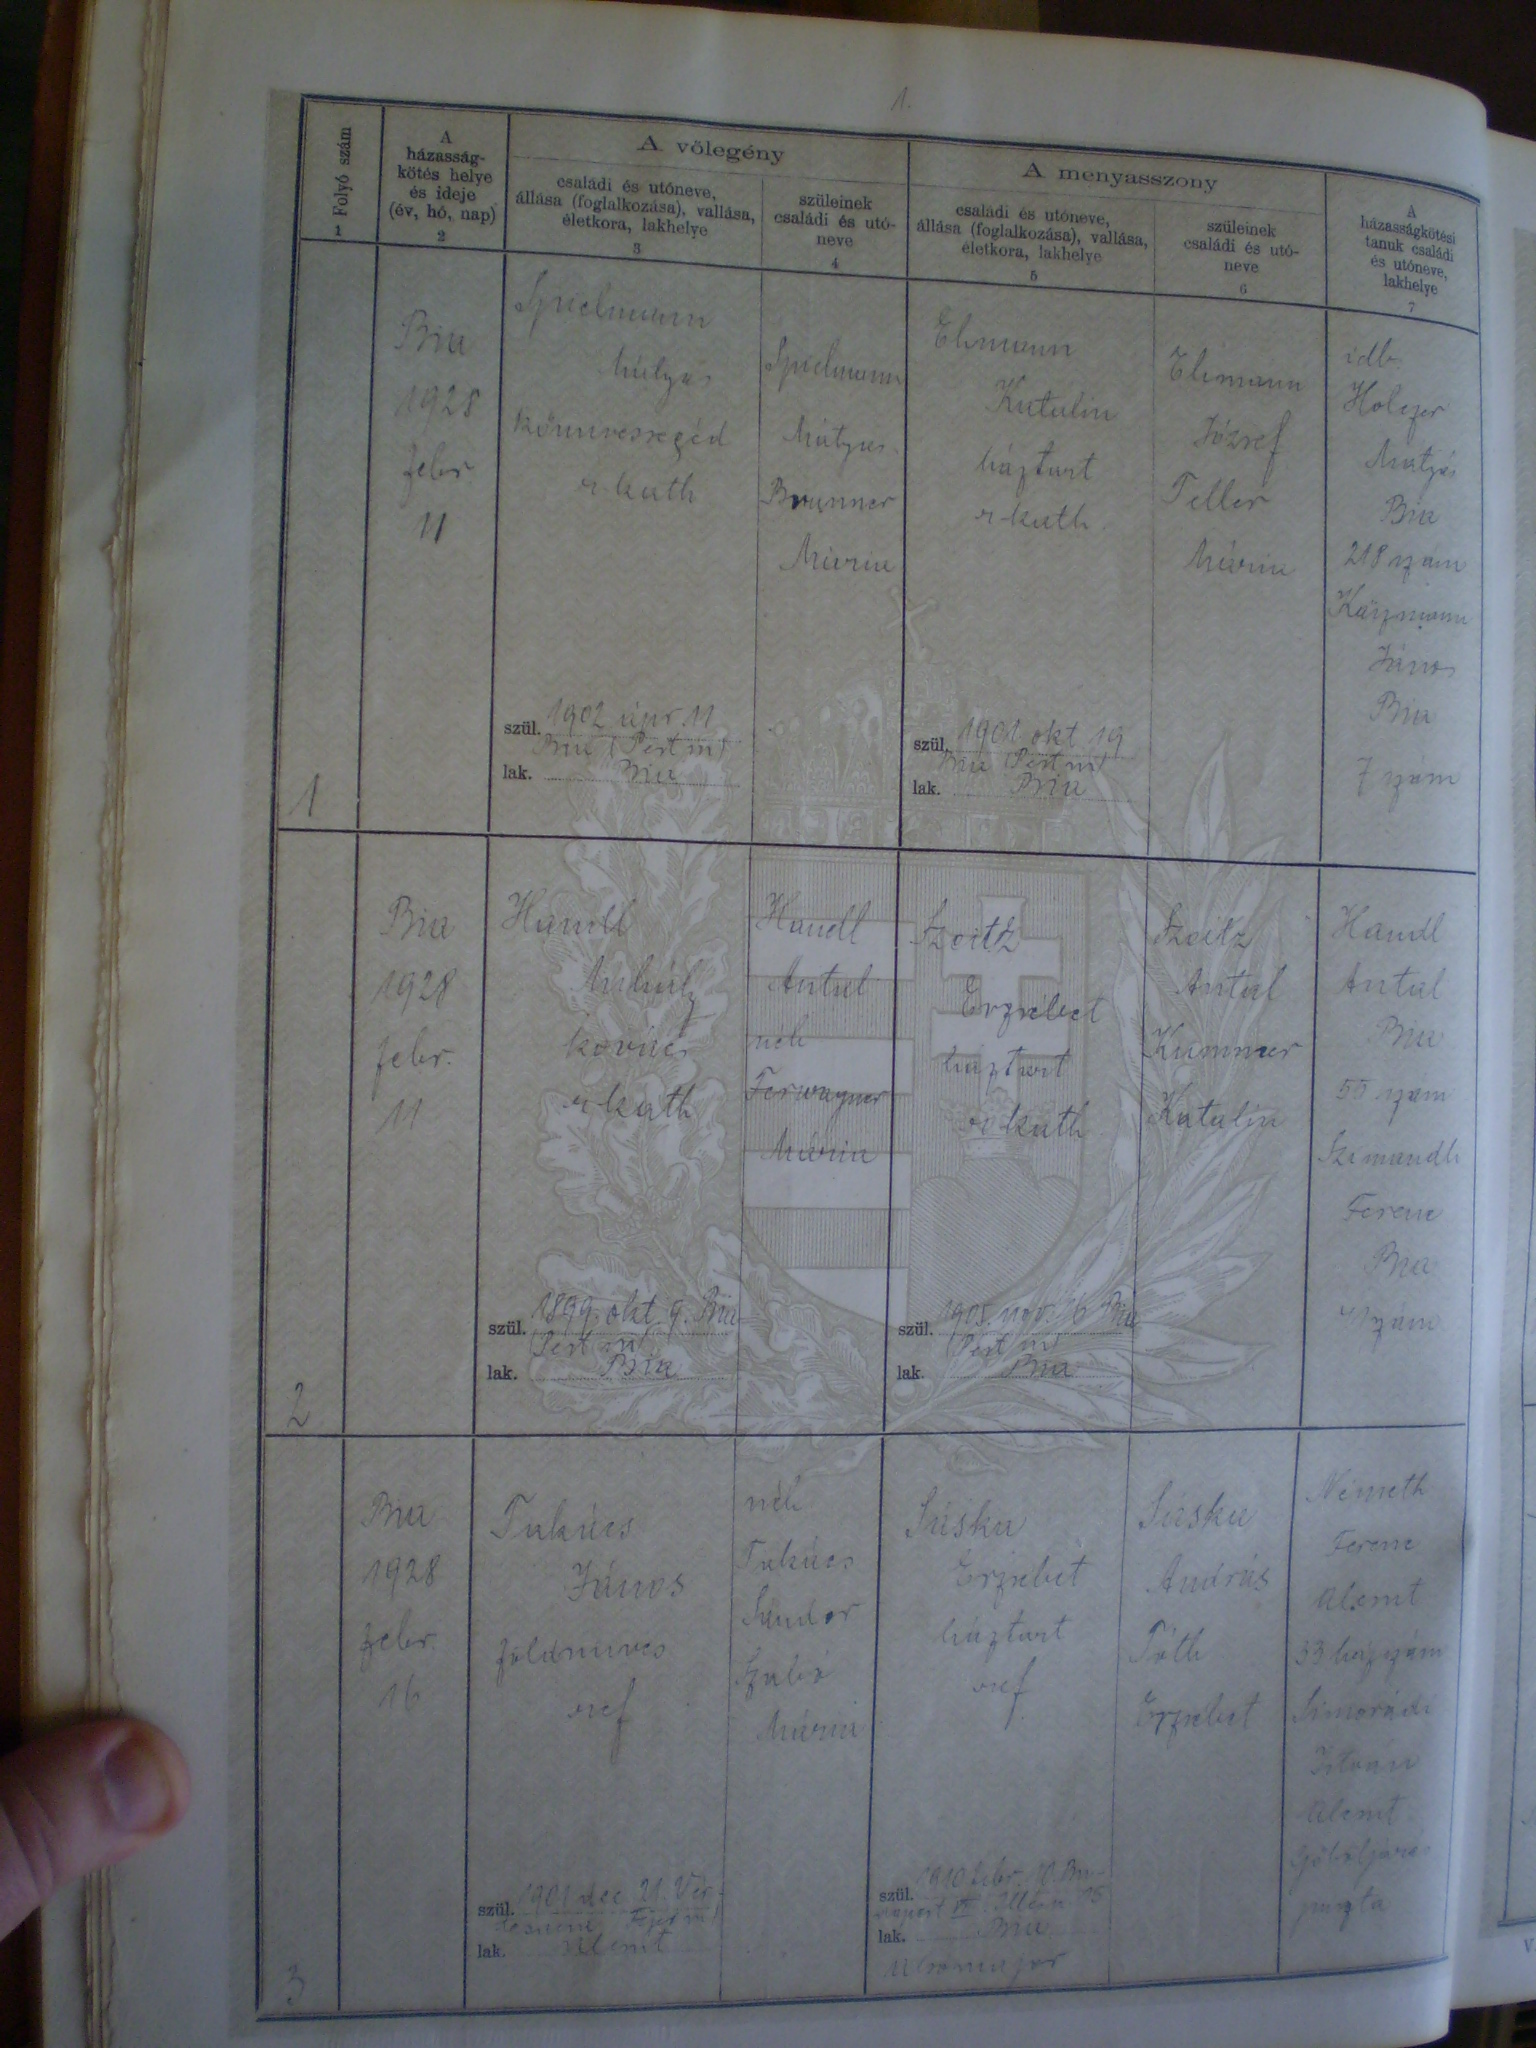 1.
Folyó szám
1
A
házasság-
kötés helye
és ideje
(év, hó, nap)
2
A vőlegény
családi és utóneve,
állása (foglalkozása), vallása,
életkora, lakhelye
3
szüleinek
családi és utó-
neve
4
A menyasszony
családi és utóneve,
állása (foglalkozása), vallása,
életkora, lakhelye
5
szüleinek
családi és utó-
neve
6
A
házasságkötési
tanuk családi
és utóneve,
lakhelye
7
1
Bia
1928
febr
11
Spielmann
Mátyás
kőmívessegéd
r. kath
szül. 1902 ápr. 11
Bia (Pest m)
lak. Bia
Spielmann
Mátyás
Brunner
Mária
Ehmann
Katalin
háztart
r. kath.
szül. 1901 okt 19
Bia (Pest m)
lak. Bia
Ehmann
József
Teller
Mária
idb.
Holczer
Mátyás
Bia
218 szám
Kászmann
János
Bia
7 szám
2
Bia
1928
febr.
11
Handl
Mihály
kovács
r. kath
szül. 1899. okt. 9. Bia
(Pest m)
lak. Bia
Handl
Antal
néh
Ferwagner
Mária
Szoitz
Erzsébet
háztart
r. kath
szül. 1905. nov. 16 Bia
(Pest m)
lak. Bia
Szoitz
Antal
Kummer
Katalin
Handl
Antal
Bia
55 szám
Szimandl
Ferenc
Bia
szám
3
Bia
1928
febr.
16
Takács
János
földmíves
ref
szül. 1901 dec. 21. Vér-
Fejér m)
lak. Alcsut
néh
Takács
Sándor
Szabó
Mária
Sáska
Erzsébet
háztart
ref
szül. 1910 febr. 10. Bu-
dapest
lak. Bia
Sáska
András
Tóth
Erzsébet
Németh
Ferenc
Alcsut
33 házszám
István
Alcsut
Göböljárás
puszta